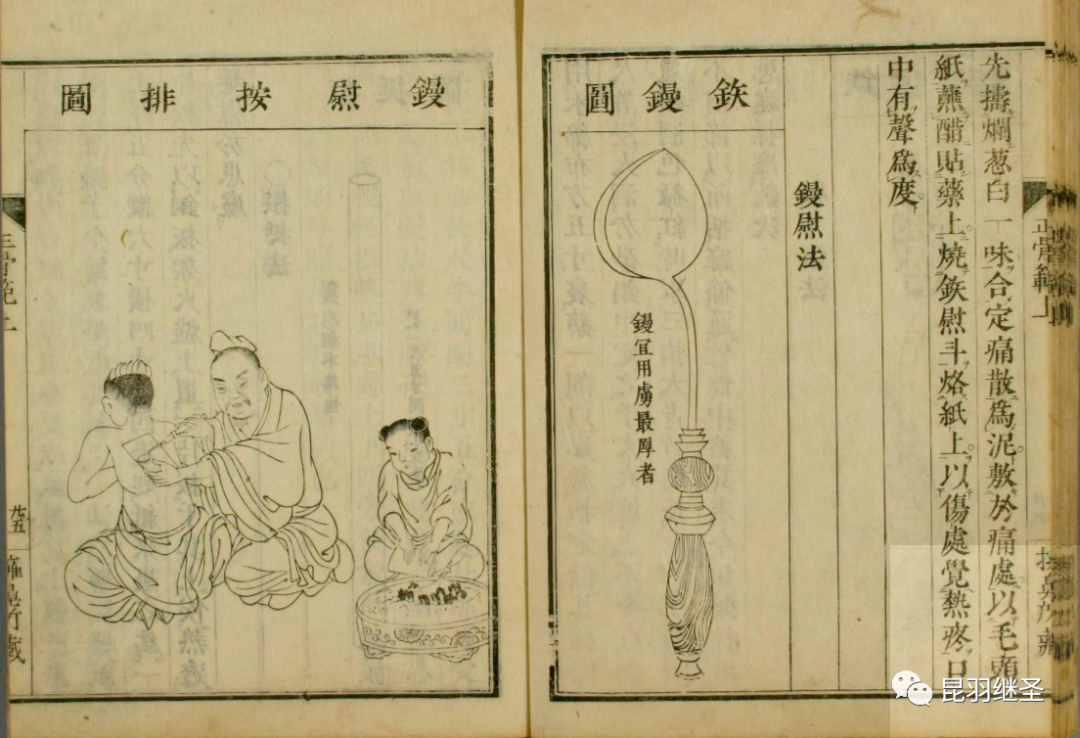 正骨範上
先擣爛葱白一味合定痛散爲泥敷於痛處以毛頭
紙蘸醋貼藥上燒鉄慰斗烙紙上以傷處覺熱疼口
中有聲爲度
鏝慰法
鉄鏝圖
鏝宜用膚最厚者
鏝慰按排圖
廿五
昆羽继圣